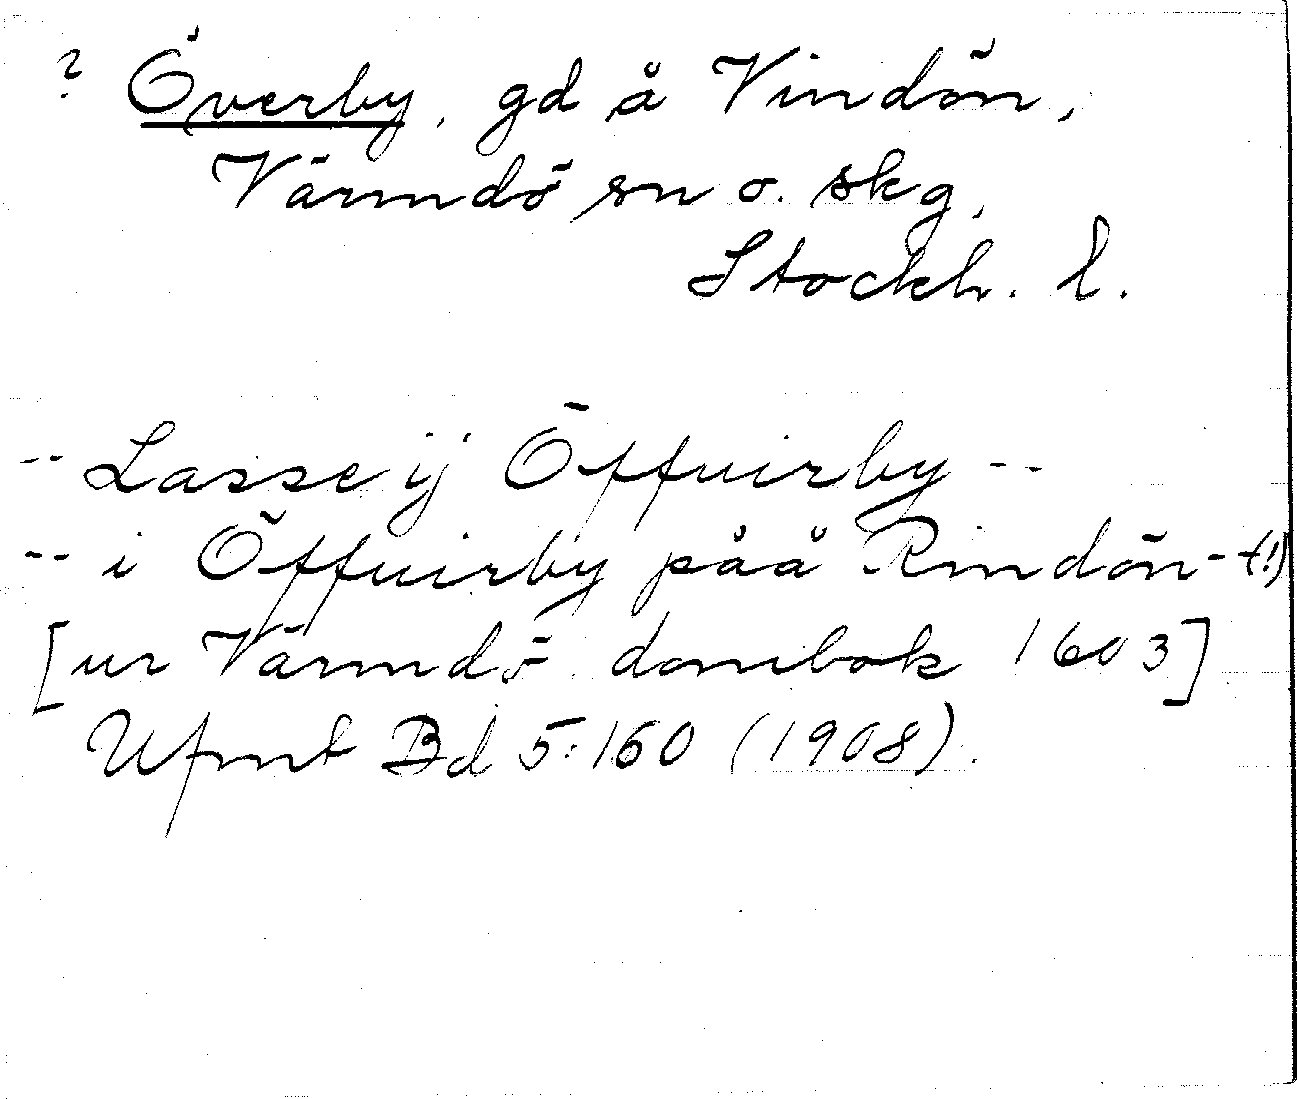 ? Överby, gd å Vindön,
Värmdö sn o. skg,
Stockh. l.
-- Lasse ij Öffuirby --
-- i Öffuirby påå Rindön -- (!)
[ur Värmdö dombok 1603]
Ufmt Bd 5:160 (1908).